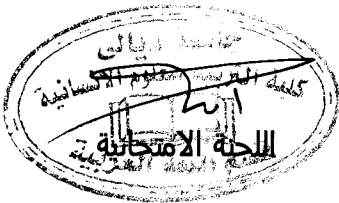 جامعة ديالى
كلية التربية للعلوم الانسانية
اللجنة الامتحانية
اللغة العربية